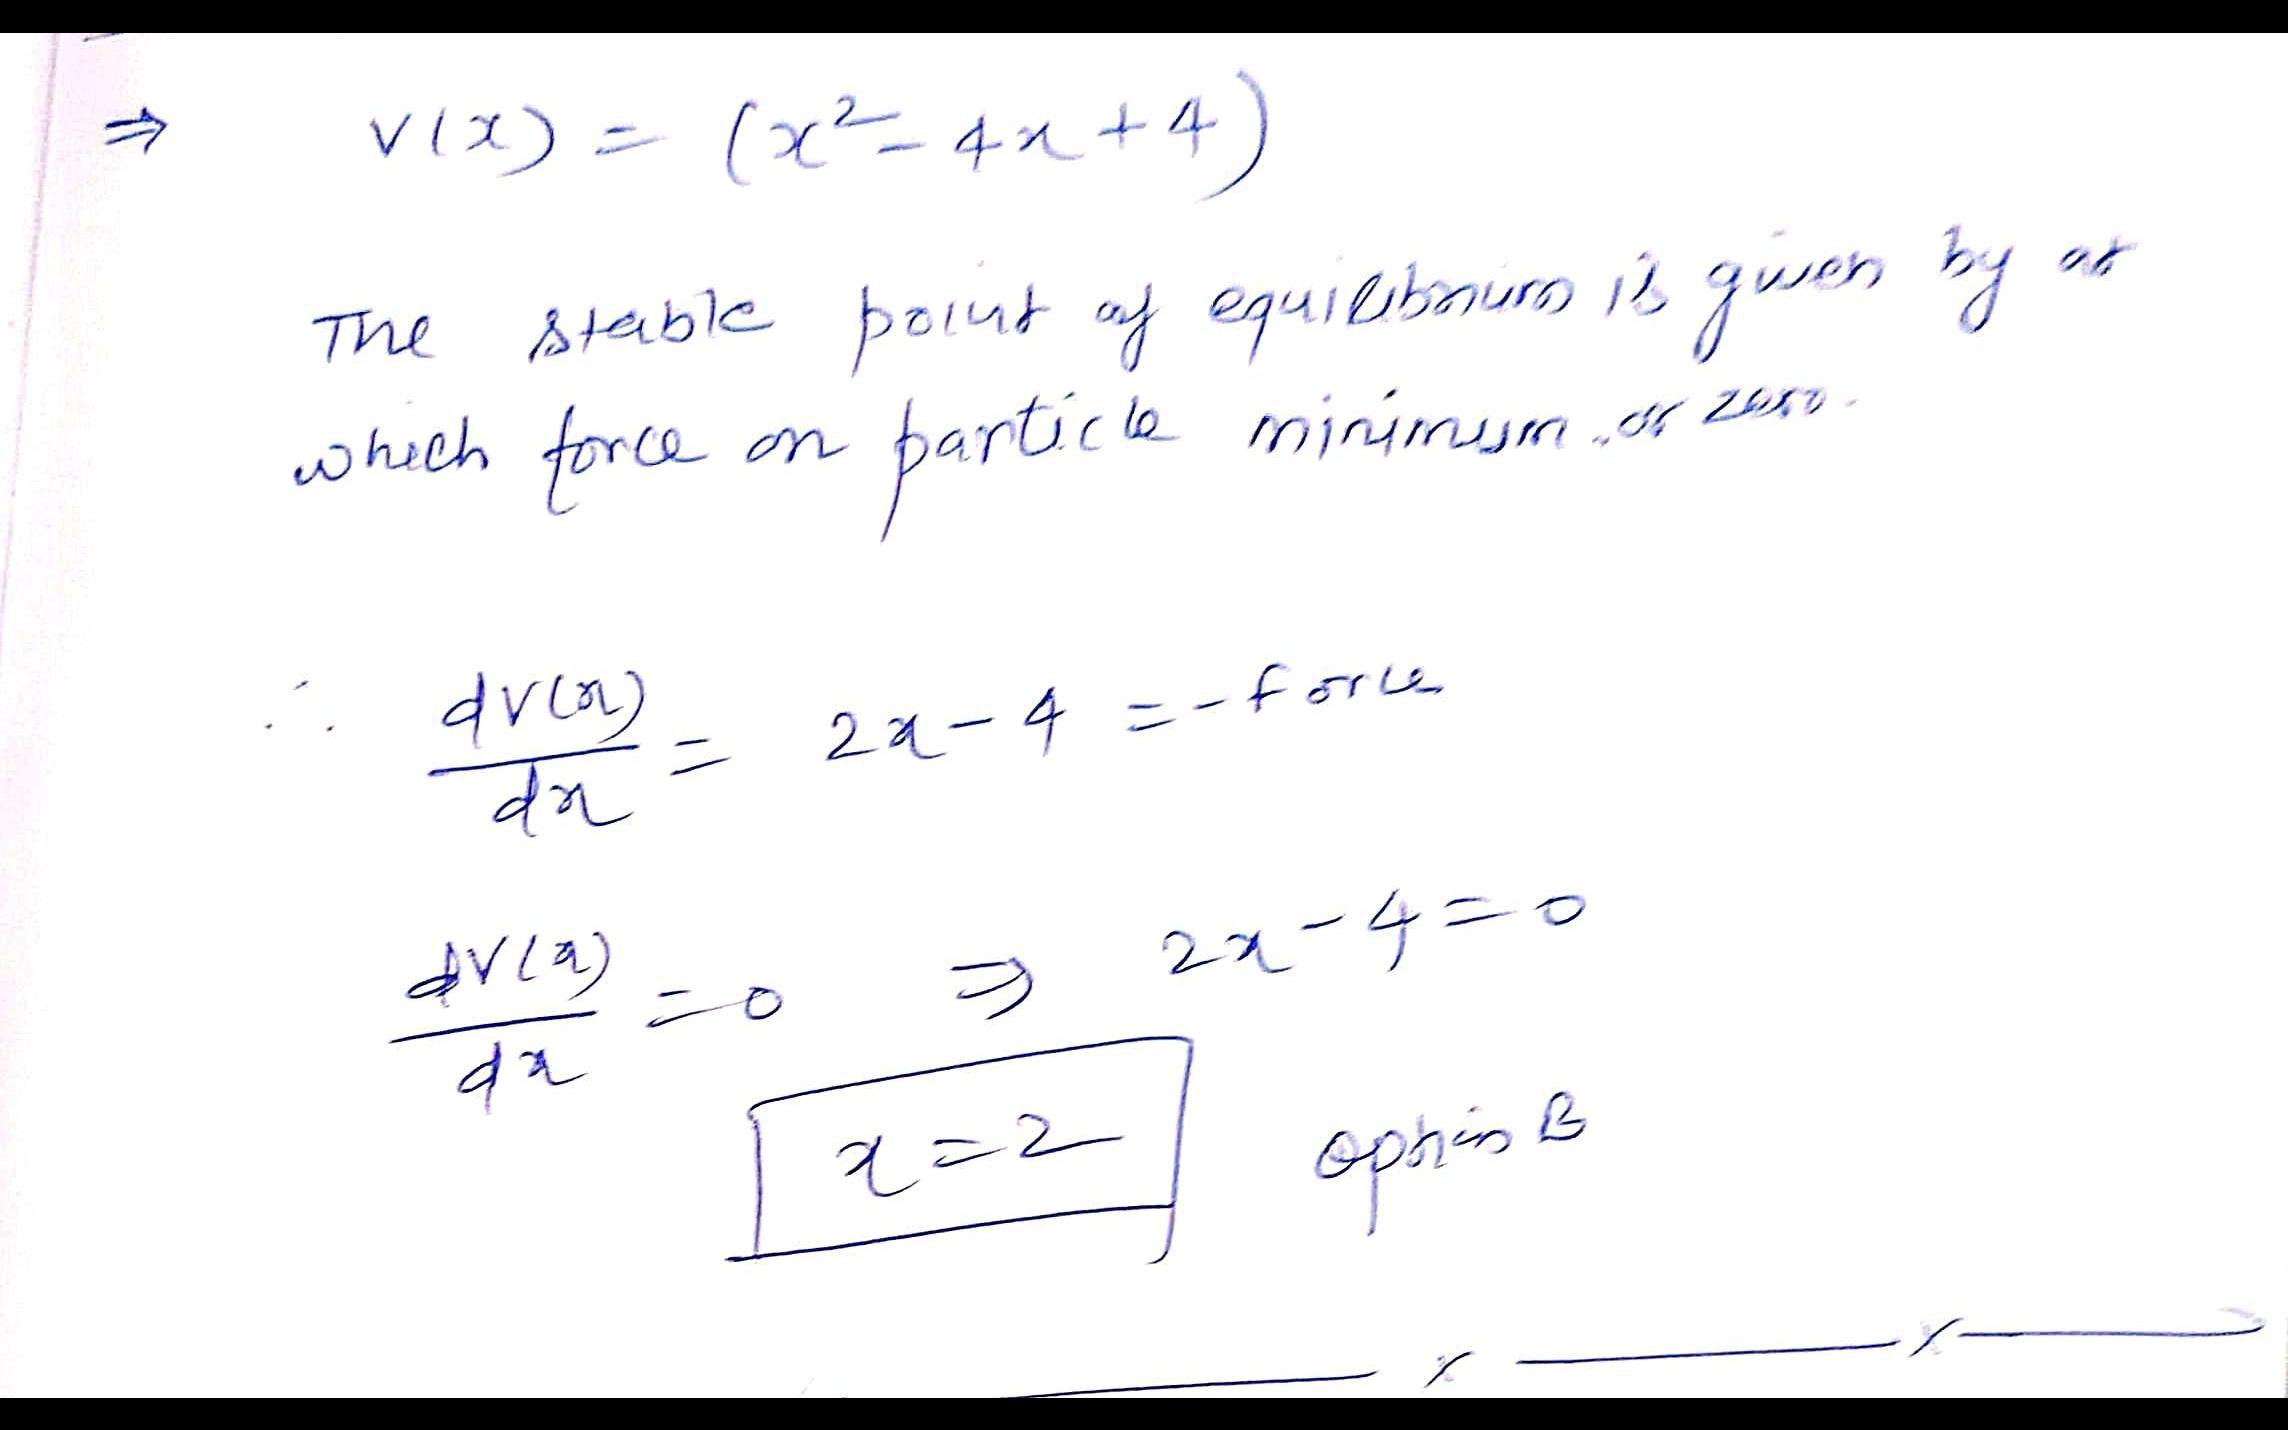 ⇒ V(x) = (x² - 4x + 4)
The stable point of equilibrium is given by at
which force on particle minimum. or zero.
∴ dV(x)/dx = 2x - 4 = - force
dV(x)/dx = 0 ⇒ 2x - 4 = 0
x = 2 option B
x x